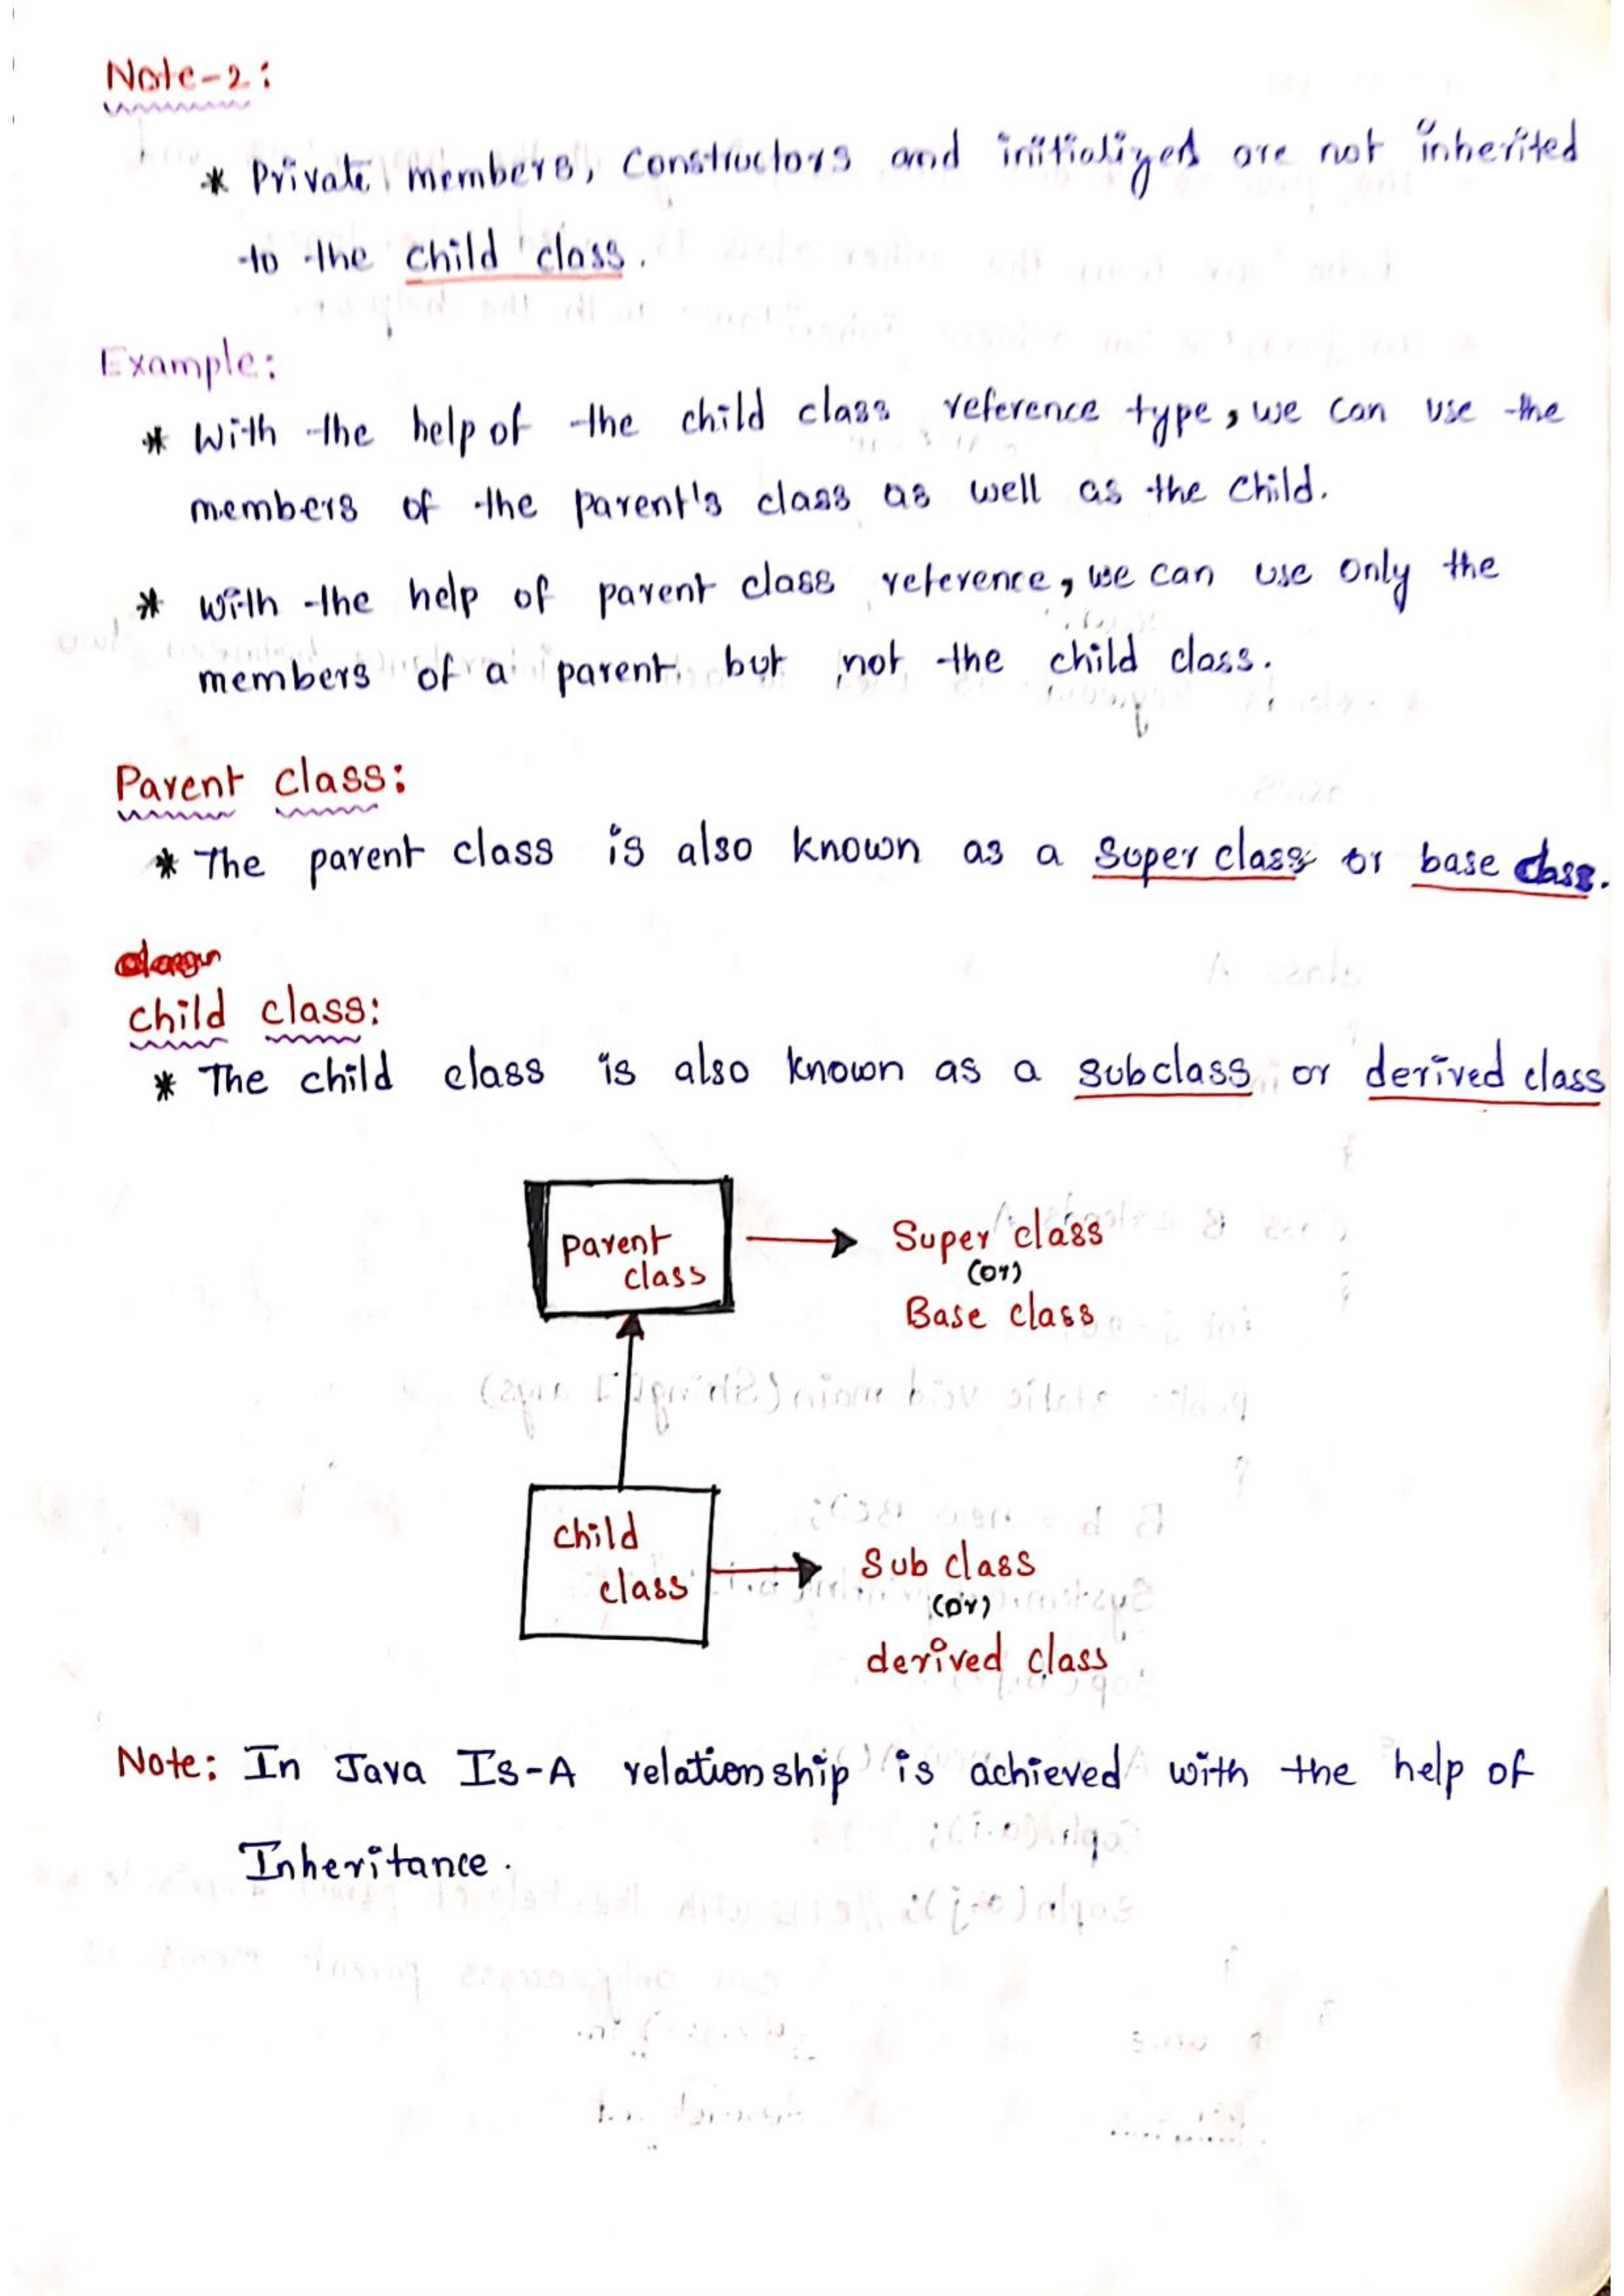 Note-2:
* Private members, constructors and initializers are not inherited
to the child class.
Example:
* With the help of the child class reference type, we can use the
members of the parent's class as well as the child.
* with the help of parent class reference, we can use only the
members of a parent but not the child class.
Parent class:
* The parent class is also known as a Super class or base class.
child class:
* The child class is also known as a subclass or derived class
parent
class
Super class
(or)
Base class
child
class
Sub class
(or)
derived class
Note: In Java Is-A relationship is achieved with the help of
Inheritance.